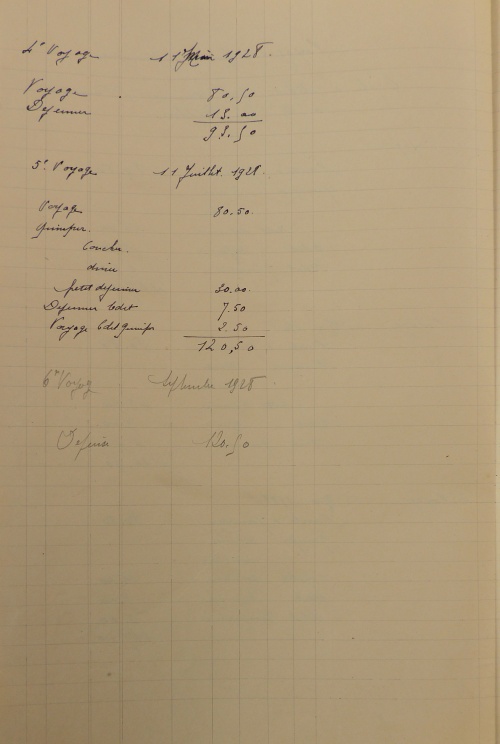 4e Voyage 11 Juin 1928.
Voyage 80.50
Dejeuner 13.00
93.50
5e Voyage 11 Juillet 1928.
Voyage 80.50.
Quimper.
Coucher.
diner
petit dejeuner 30.00.
Dejeuner Odet 7.50
Voyage Odet Quimper 2.50
120,50
6e Voyag Septembre 1928
120.50